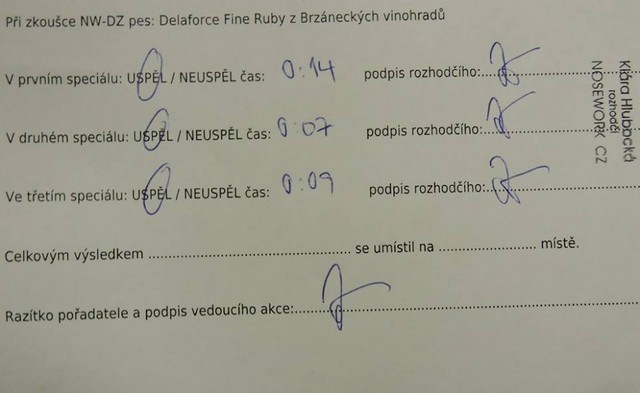 Při zkoušce NW-DZ pes: Delaforce Fine Ruby z Brzáneckých vinohradů
V prvním speciálu: USPĚL / NEUSPĚL čas: 0:14 podpis rozhodčího:
V druhém speciálu: USPĚL / NEUSPĚL čas: 0:07 podpis rozhodčího:
Ve třetím speciálu: USPĚL / NEUSPĚL čas: 0:09 podpis rozhodčího:
Klára Hlubocká
rozhodčí
NOSEWORK CZ
Celkovým výsledkem ................................................... se umístil na ......................... místě.
Razítko pořadatele a podpis vedoucího akce: